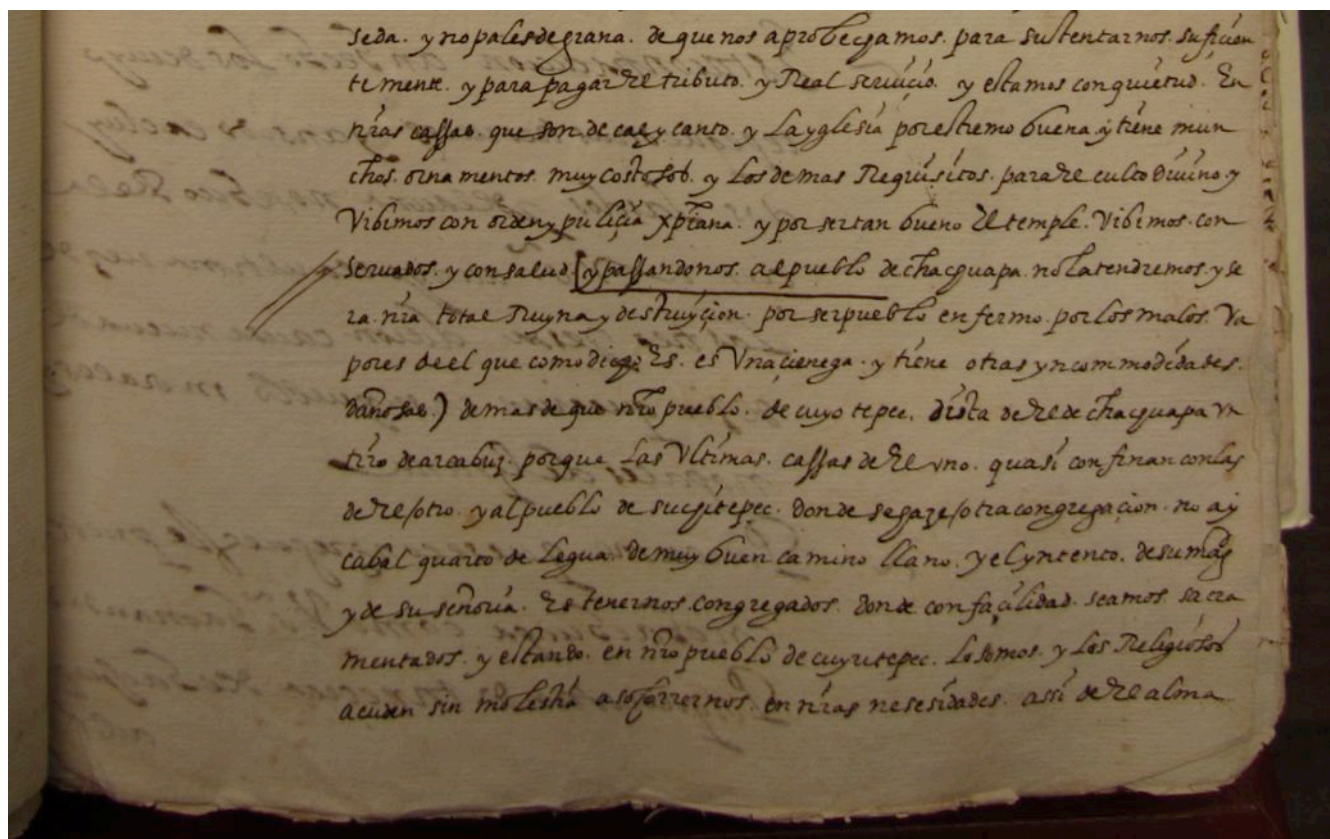 seda. y nopales de grana. de que nos aprobechamos. para sustentarnos. suficien
temente. y para pagar el tributo. y Real seruiçio. y estamos con quietud. En
nras cassas. que son de cal y canto. y La yglesia por estremo buena. y tiene mun
chos. ornamentos. muy costosos. y Los demas Requisitos. para el culto Diuino. y
Vibimos con orden y puliçia xpiana. y por ser tan bueno El temple. Vibimos. con
seruados. y con salud [y passandonos. al pueblo de chacguapa. no la tendremos. y se
ra. nra total Ruyna y destruyçion. por ser pueblo enfermo. por los malos. Va
pores de el que como Es. es Vna çienega. y tiene otras yncommodidades.
dañosas.) demas de que nro pueblo. de cuyotepec. dista de el de chacguapa vn
tiro de arcabuz. porque Las Vltimas. cassas de el vno. quasi confinan con las
de el/otro. y al pueblo de suchitepec. donde se haze/otra congregaçion. no ay
cabal quarto de Legua. de muy buen camino llano. y el yntento. de su magd
y de su señoria. Es tenernos. congregados. donde con façilidad. seamos. sacra
mentados. y estando. en nro pueblo de cuyutepec. Lo somos. y Los Religiosos
acuden sin molestia a socorrernos. en nras nesesidades. assi de el alma